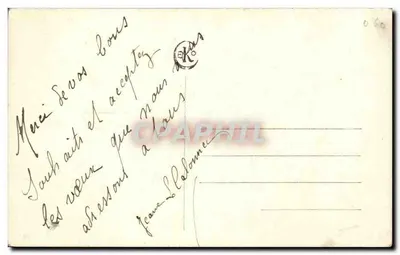 Merci de vos bons
souhaits et acceptez
les vœux que nous vous
adressons à tous
Jeanne
CPAPHIL